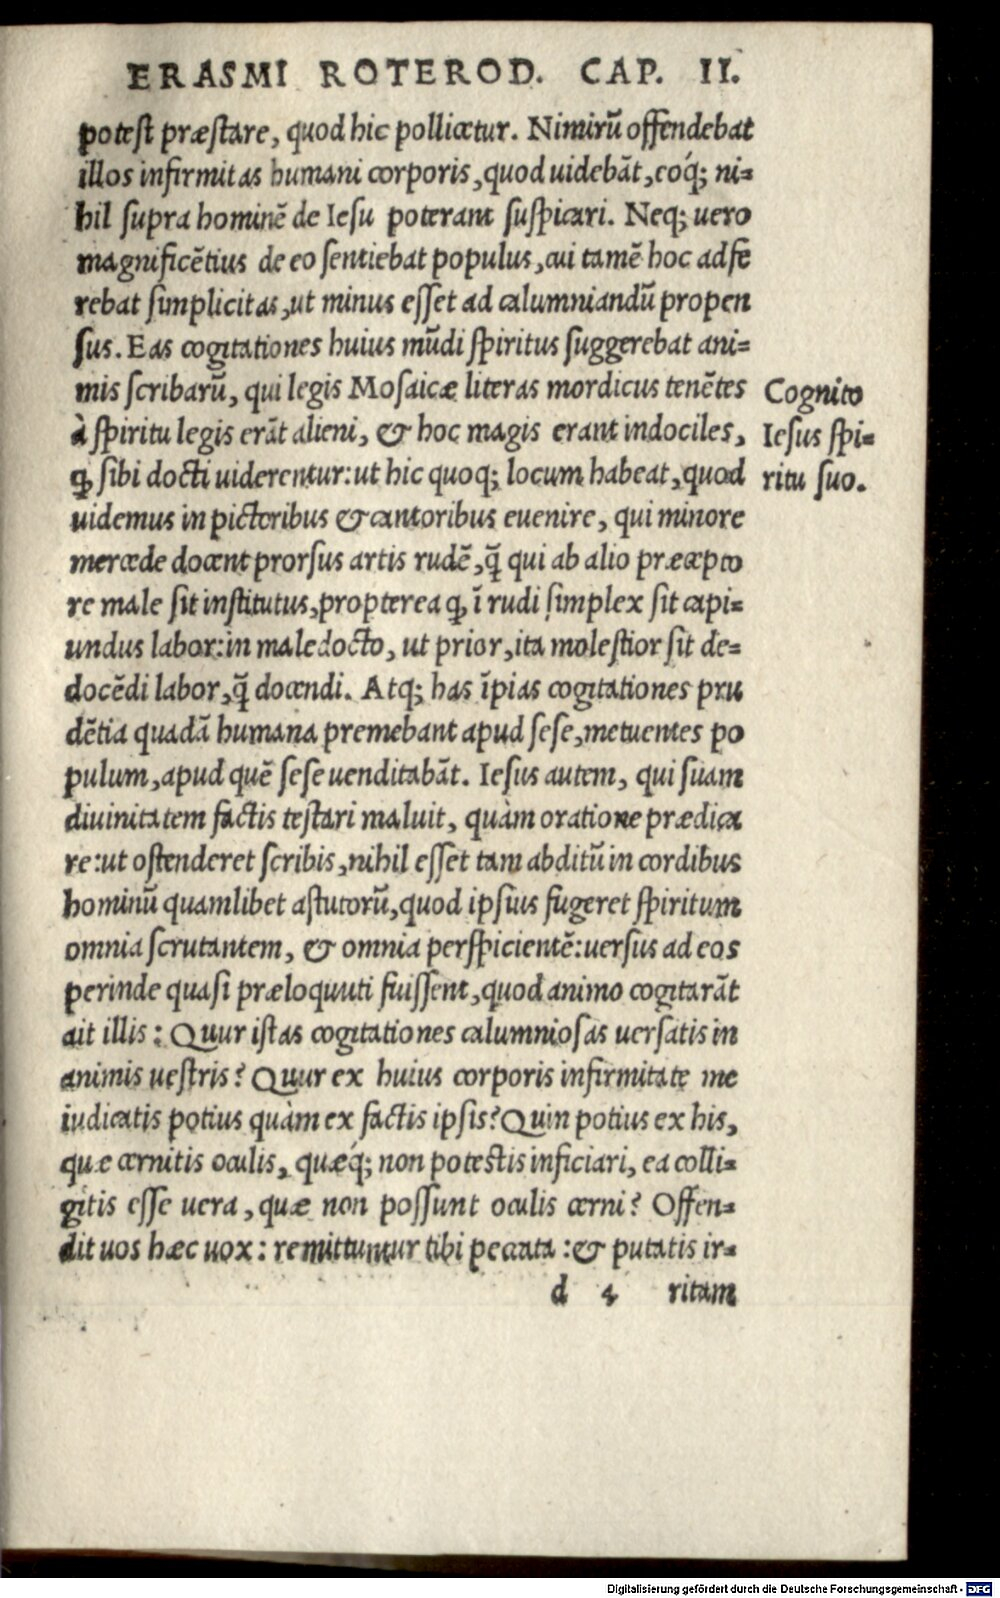 ERASMI ROTEROD. CAP. II.
potest præstare, quod hic pollicetur. Nimirũ offendebat
illos infirmitas humani corporis, quod uidebãt, eóq; ni-
hil supra hominẽ de Iesu poterant suspicari. Neq; uero
magnificẽtius de eo sentiebat populus, cui tamẽ hoc adfe
rebat simplicitas, ut minus esset ad calumniandũ propen
sus. Eas cogitationes huius mũdi spiritus suggerebat ani-
mis scribarũ, qui legis Mosaicæ literas mordicus tenẽtes
à spiritu legis erãt alieni, & hoc magis erant indociles,
ꝙ sibi docti uiderentur: ut hic quoq; locum habeat, quod
uidemus in pictoribus & cantoribus euenire, qui minore
mercede docent prorsus artis rudẽ, q̃ qui ab alio præcepto
re male sit institutus, propterea ꝙ ĩ rudi simplex sit capi-
undus labor: in male docto, ut prior, ita molestior sit de-
docẽdi labor, q̃ docendi. Atq; has ĩpias cogitationes pru
dẽtia quadã humana premebant apud sese, metuentes po
pulum, apud quẽ sese uenditabãt. Iesus autem, qui suam
diuinitatem factis testari maluit, quàm oratione prædica
re: ut ostenderet scribis, nihil esset tam abditũ in cordibus
hominũ quamlibet astutorũ, quod ipsius fugeret spiritum
omnia scrutantem, & omnia perspicientẽ: uersus ad eos
perinde quasi præloquuti fuissent, quod animo cogitarãt
ait illis: Quur istas cogitationes calumniosas uersatis in
animis uestris? Quur ex huius corporis infirmitate me
iudicatis potius quàm ex factis ipsis? Quin potius ex his,
quæ cernitis oculis, quæq́; non potestis inficiari, ea colli-
gitis esse uera, quæ non possunt oculis cerni? Offen-
dit uos hæc uox: remittuntur tibi peccata: & putatis ir-
d 4 ritam
Cognito
Iesus spi-
ritu suo.
Digitalisierung gefördert durch die Deutsche Forschungsgemeinschaft - DFG